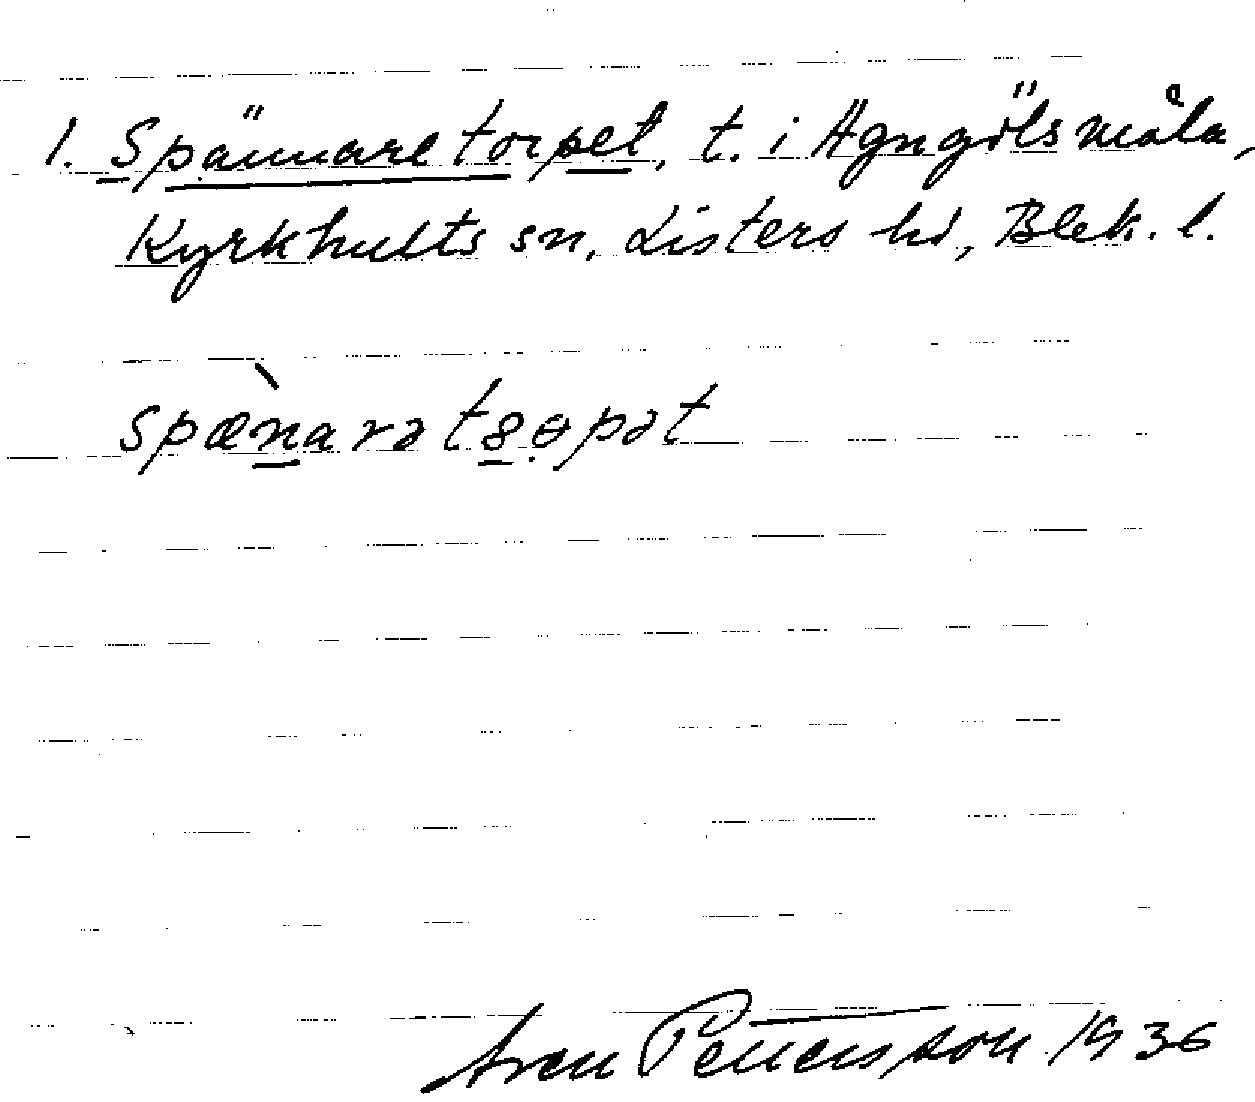 1. Spännaretorpet, t. i Ägngölsmåla,
Kyrkhults sn, Listers hd, Blek. l.
spæ̀naratȣɵpət
Sven Pettersson 1936